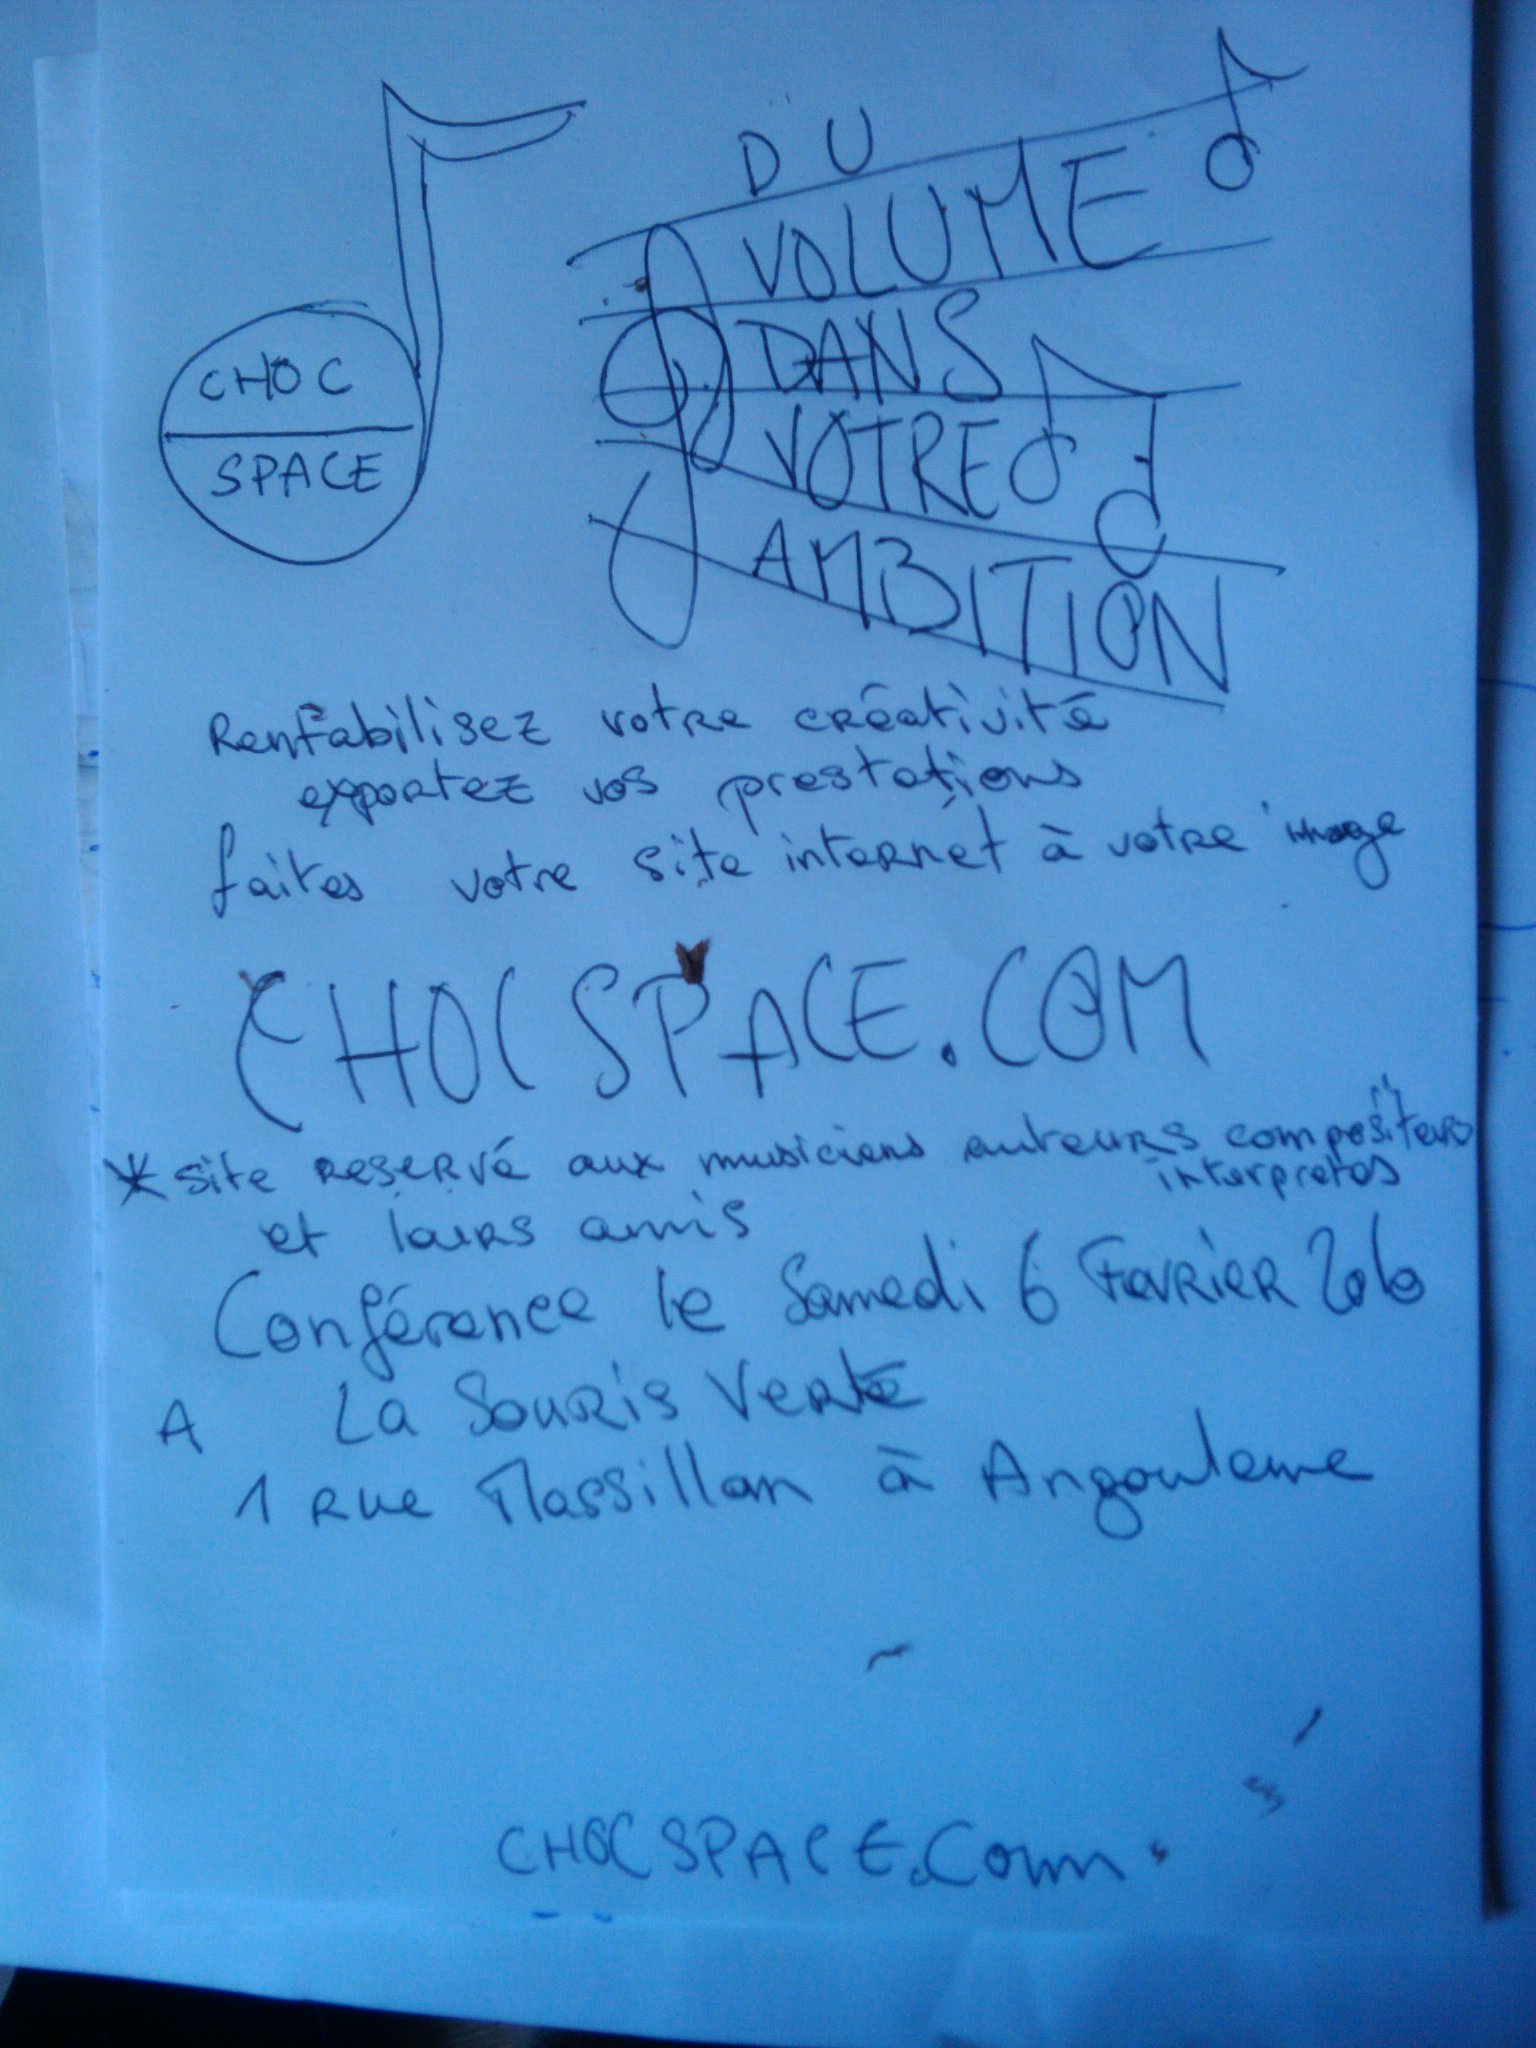 CHOC
SPACE
DU
VOLUME
DANS
VOTRE
AMBITION
Rentabilisez votre créativité
exportez vos prestations
faites votre site internet à votre image
CHOCSPACE.COM
* site reservé aux musiciens auteurs compositeurs
interpretes
et leurs amis
Conférence le Samedi 6 Fevrier 2010
A La Souris Verte
1 rue Massillon à Angouleme
CHOCSPACE.Com